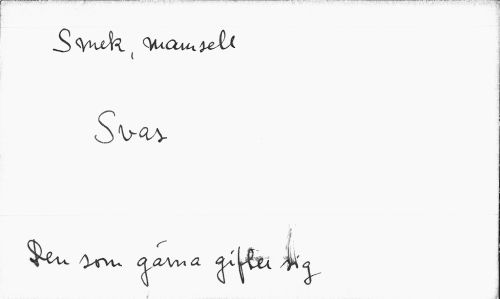 Smek, mamsell
Svas
Den som gärna gifter sig